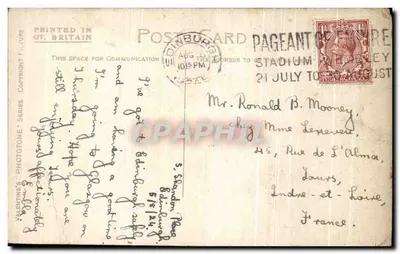 PRINTED IN
GT. BRITAIN
POST CARD
THIS SPACE FOR COMMUNICATION
ADDRESS TO
EDINBURGH
10:15 PM
PAGEANT OF EMPIRE
STADIUM WEMBLEY
21 JULY TO 30 AUGUST
5, Brandon Place
Edinburgh
5/8/24.
I've got to Edinburgh safely
and am having a good time.
I'm going to Glasgow on
Thursday. Hope you are
still enjoying Tours.
Yours affectionately
Mr. Ronald B. Mooney.
chez Mme
45, Rue de L'Alma,
Tours,
Indre-et-Loire,
France.
"PHOTOTONE" SERIES. COPYRIGHT PICTURE